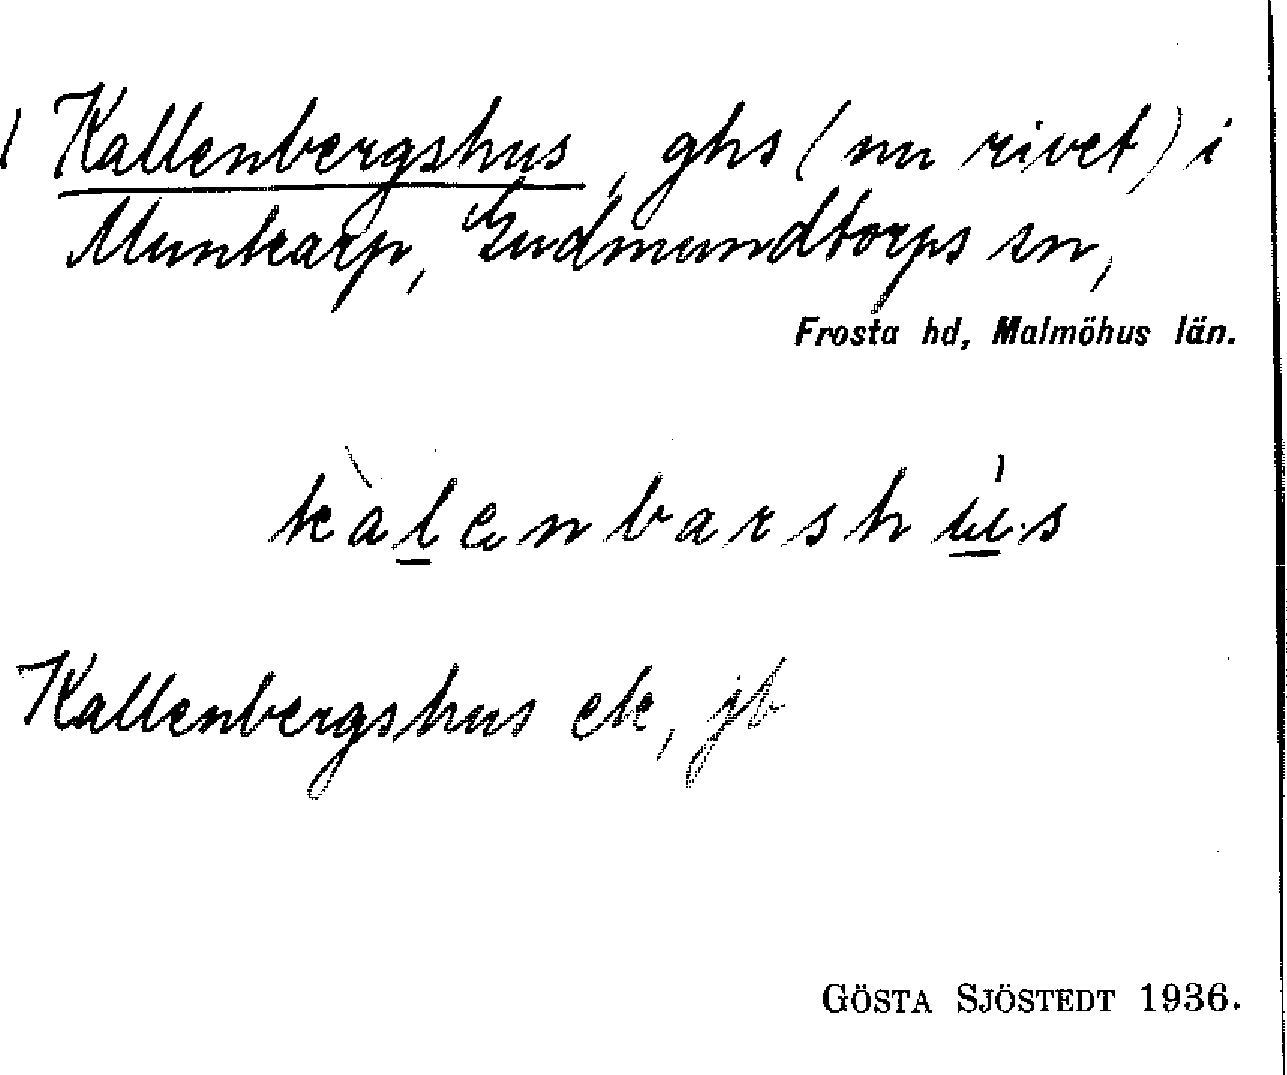 Kallenbergshus, ghs (nu rivet) i
Munkarp, Gudmundtorps sn,
Frosta hd, Malmöhus län.
kàlenbarshús
Kallenbergshus ek, jb
GÖSTA SJÖSTEDT 1936.